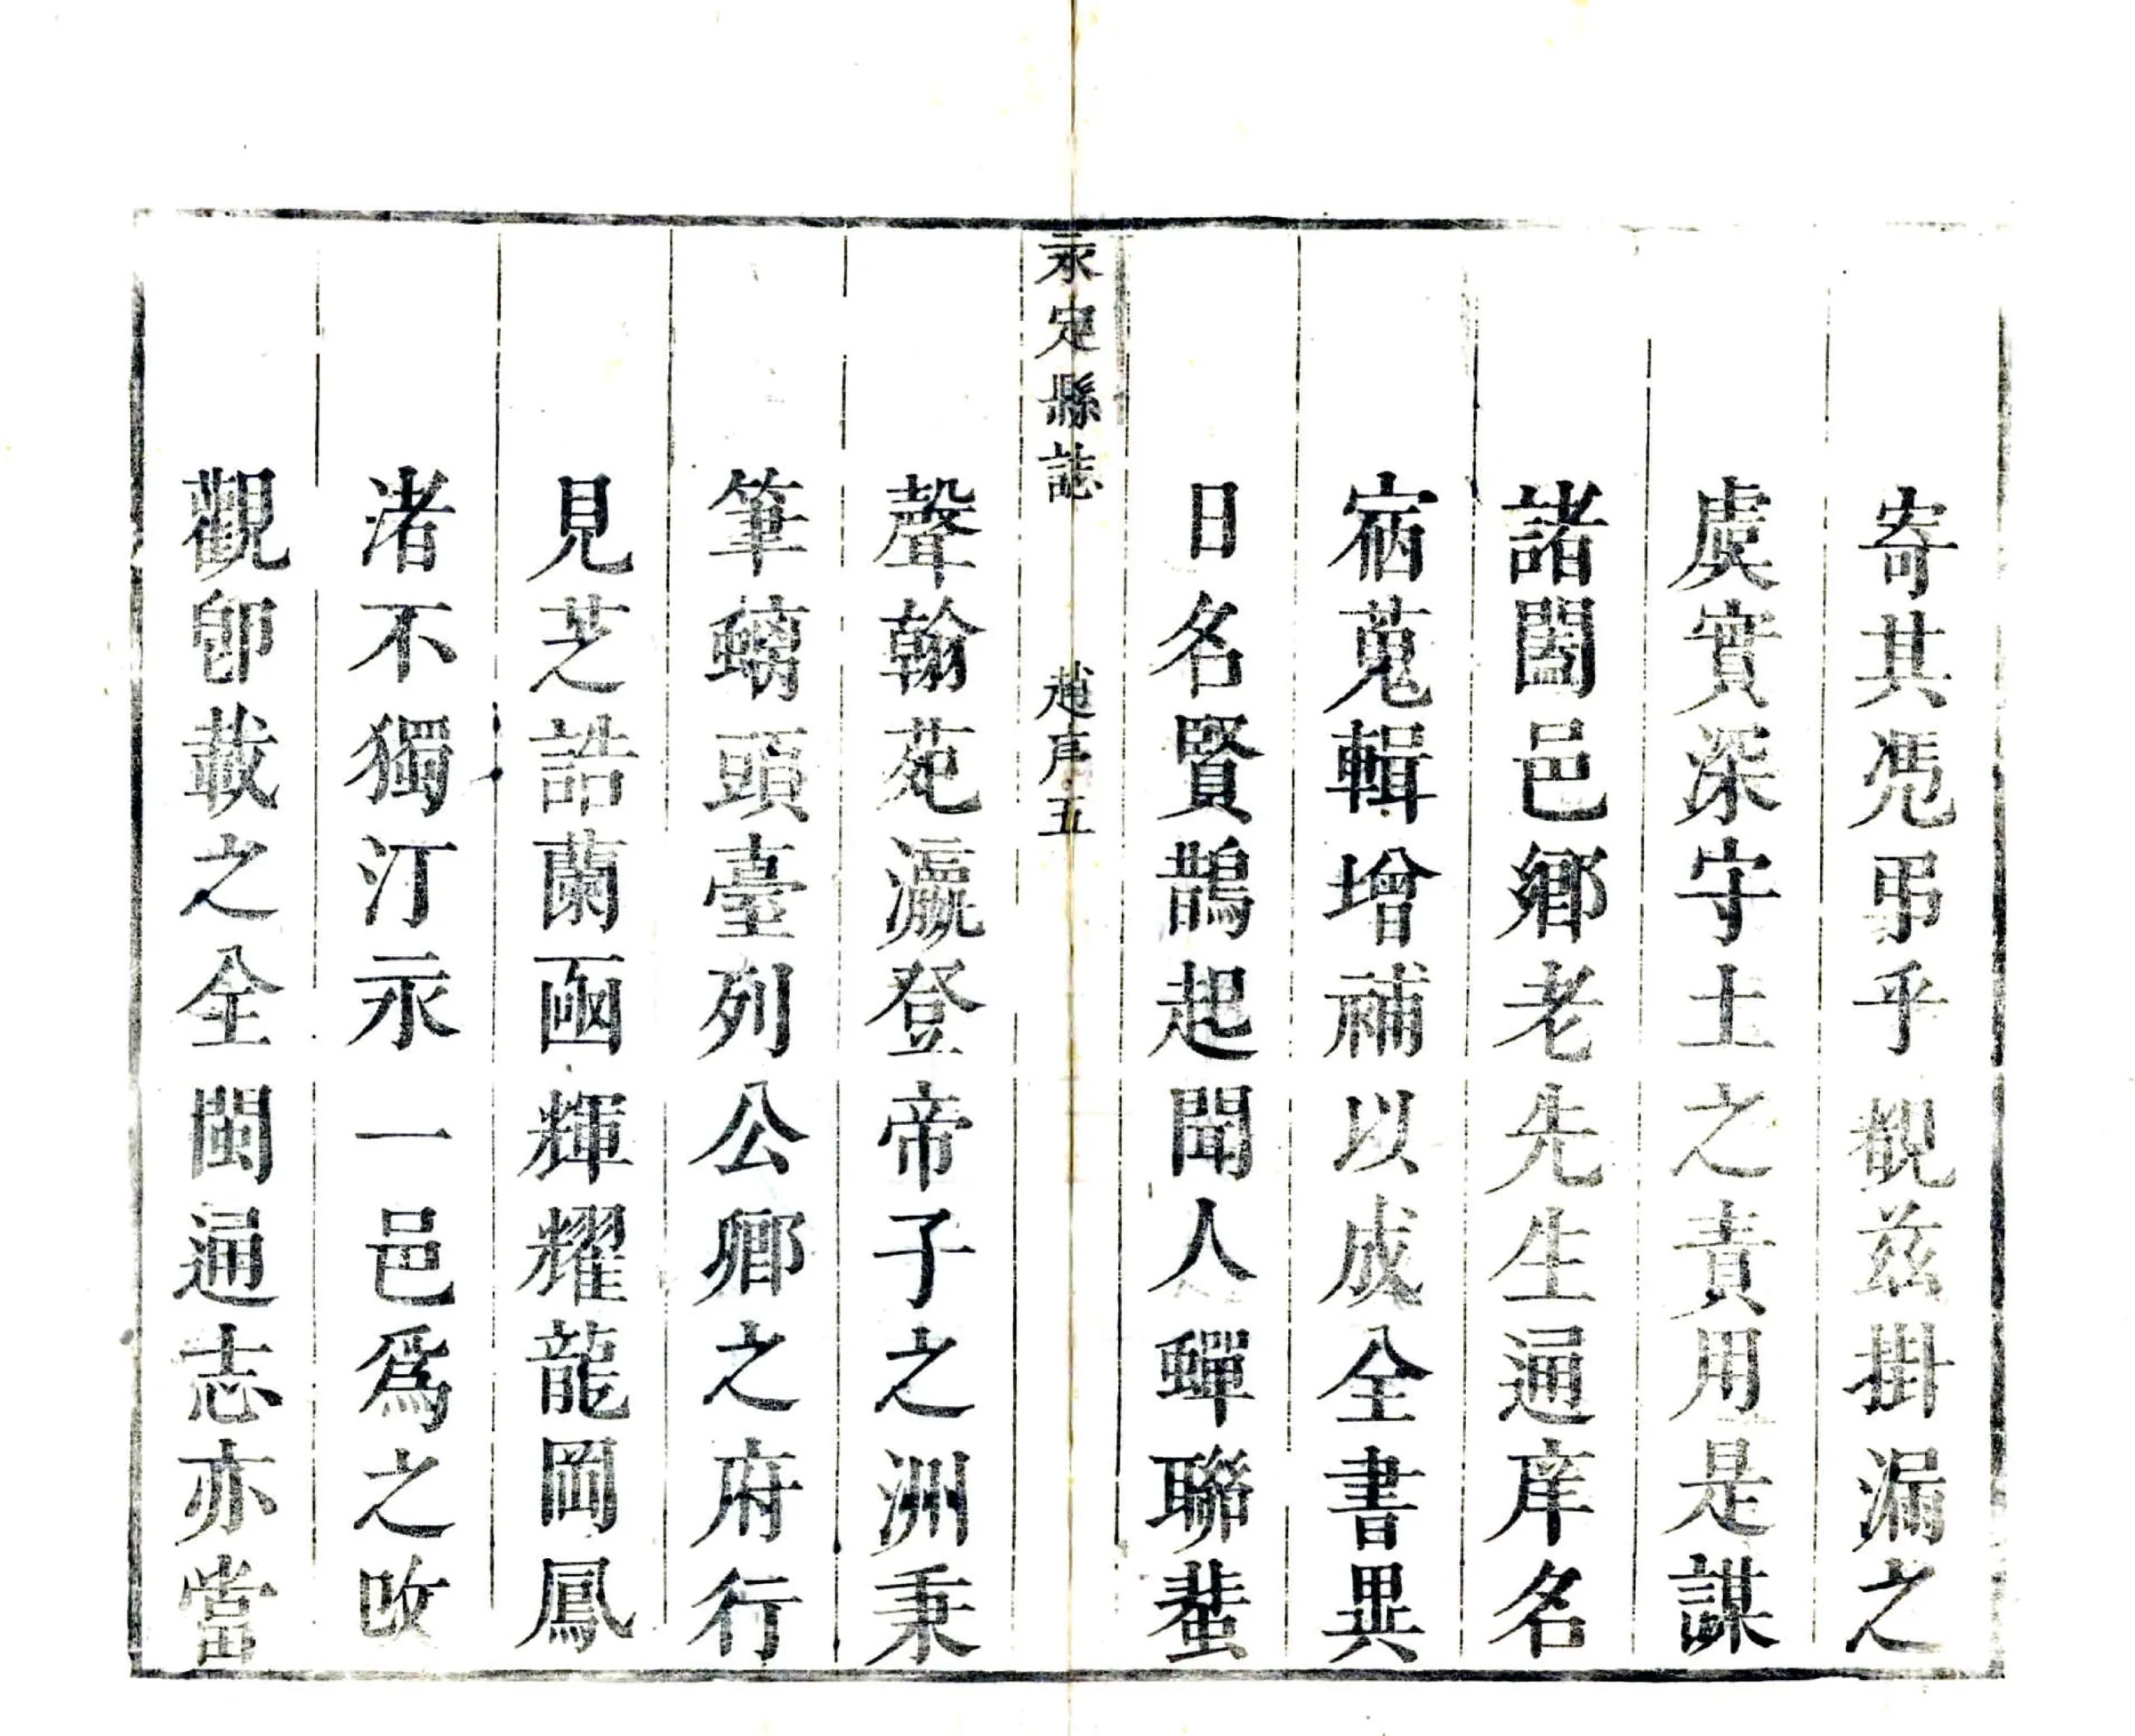 寄其憑弔乎觀茲掛漏之
虞實深守土之責用是謀
諸闔邑鄉老先生通庠名
宿蒐輯增補以成全書異
日名賢鵲起聞人蟬聯蜚
永定縣誌 趙序五
聲翰苑瀛登帝子之洲秉
筆螭頭臺列公卿之府行
見芝誥蘭函輝耀龍岡鳳
渚不獨汀永一邑爲之改
觀卽載之全閩通志亦當